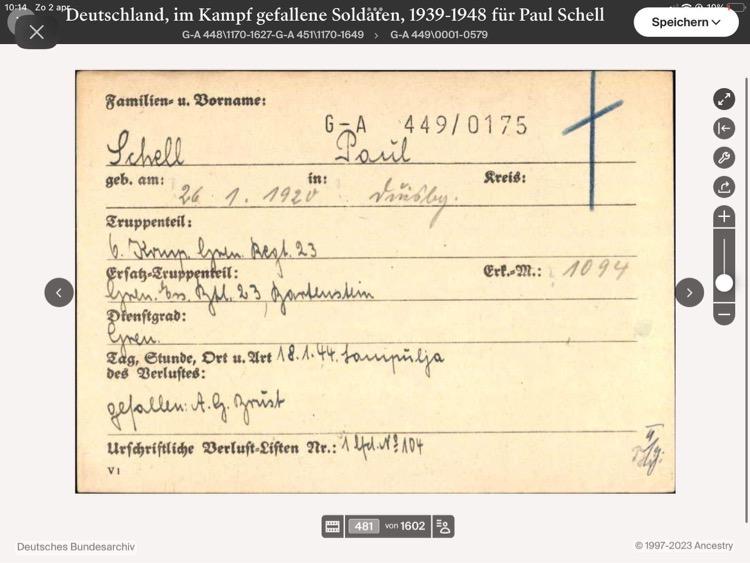 10:14 Zo 2 apr.
Deutschland, im Kampf gefallene Soldaten, 1939-1948 für Paul Schell
G-A 448\1170-1627-G-A 451\1170-1649 › G-A 449\0001-0579
Speichern
Familien- u. Vorname:
G-A 449/0175
Schell Paul
geb. am: in: Kreis:
26. 1. 1920 Duisbg.
Truppenteil:
6. Komp. Gren. Regt. 23
Ersatz-Truppenteil: Erk.-M.: 1094
Gren. Ers. Btl. 23, Bartenstein
Dienstgrad:
Gren.
Tag, Stunde, Ort u. Art 18.1.44.
des Verlustes:
gefallen: A.G. Brust
Urschriftliche Verlust-Listen Nr.: 1 Lfd. No 104
V1
481 von 1602
Deutsches Bundesarchiv
© 1997-2023 Ancestry